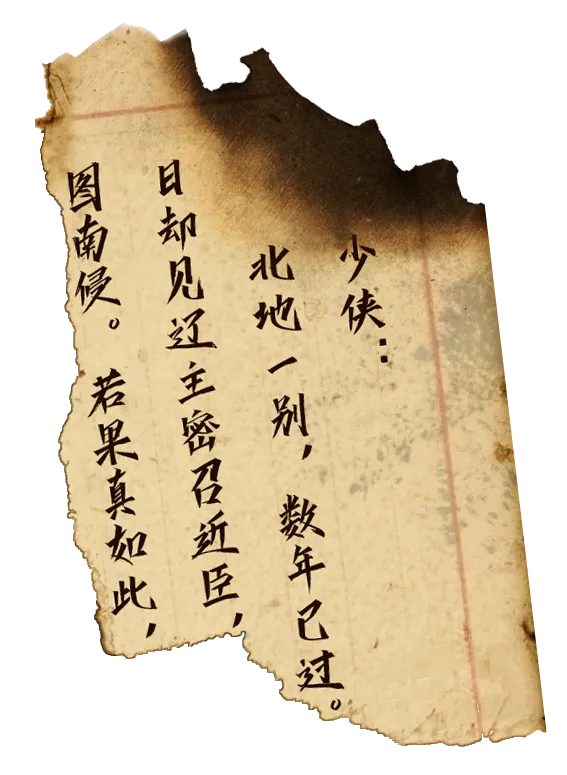 少侠：
北地一别，数年已过。
日却见辽主密召近臣，
图南侵。若果真如此，